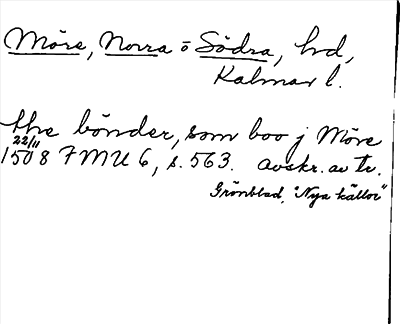 Möre, Norra o Södra, hd,
Kalmar l.
the bönder, som boo j Möre
22/11
1508 FMU 6, s. 563. Avskr. av tr.
Grönblad, "Nya källor"